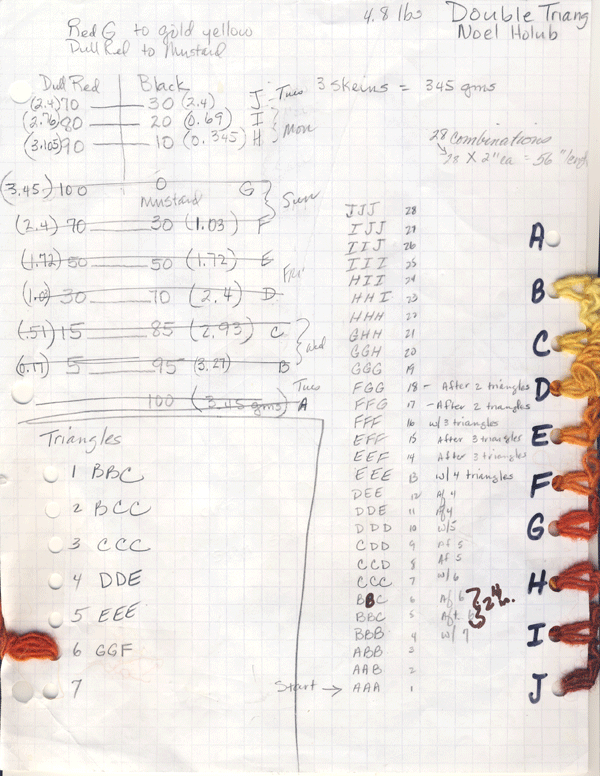 4.8 lbs
Double Triang
Noel Holub
Red G to gold yellow
Dull Red to Mustard
Dull Red Black
(2.4) 70 — 30 (2.4) J Tues
(2.76) 80 — 20 (0.69) I
(3.105) 90 — 10 (0.345) H Mon
3 skeins = 345 gms
28 combinations
28 x 2" ea = 56"
(3.45) 100 — 0 G
Mustard
Sun
(2.4) 70 — 30 (1.03) F
(1.72) 50 — 50 (1.72) E
Fri
30 — 70 (2.4) D
(.51) 15 — 85 (2.93) C
Wed
(0.17) 5 — 95 (3.27) B
Tues
100 (3.45 gms) A
Triangles
1 BBC
2 BCC
3 CCC
4 DDE
5 EEE
6 GGF
7
JJJ 28
IJJ 27
IIJ 26
III 25
HII 24
HHI 23
HHH 22
GHH 21
GGH 20
GGG 19
FGG 18 - After 2 triangles
FFG 17 - After 2 triangles
FFF 16 w/ 3 triangles
EFF 15 After 3 triangles
EEF 14 After 3 triangles
EEE 13 w/ 4 triangles
DEE 12 Af 4
DDE 11 Af 4
DDD 10 w/5
CDD 9 Af 5
CCD 8 Af 5
CCC 7 w/6
BBC 6 Af 6
BBC 5 Aft 6
BBB 4 w/ 7
ABB
AAB 2
Start → AAA 1
A
B
C
D
E
F
G
H
I
J